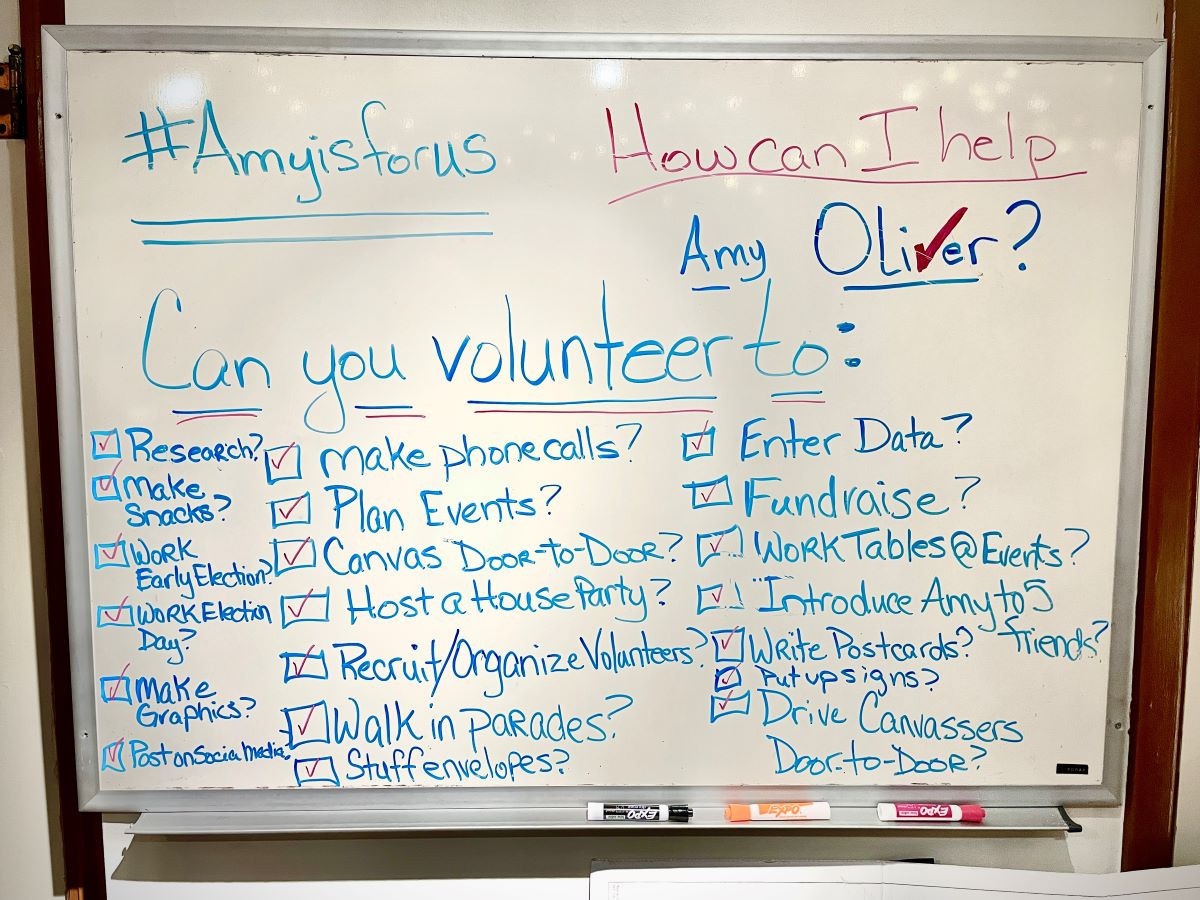 #Amyisforus
How can I help
Amy Oliver?
Can you volunteer to:
Research?
Make
Snacks?
Work
Early Election?
Work Election
Day?
Make
Graphics?
Post on Social media?
make phone calls?
Plan Events?
Canvas Door-to-Door?
Host a House Party?
Recruit/Organize Volunteers?
Walk in parades?
Stuff envelopes?
Enter Data?
Fundraise?
Work Tables @ Events?
Introduce Amy to 5
friends?
Write Postcards?
Put up signs?
Drive Canvassers
Door-to-Door?
EXPO
EXPO
EXPO